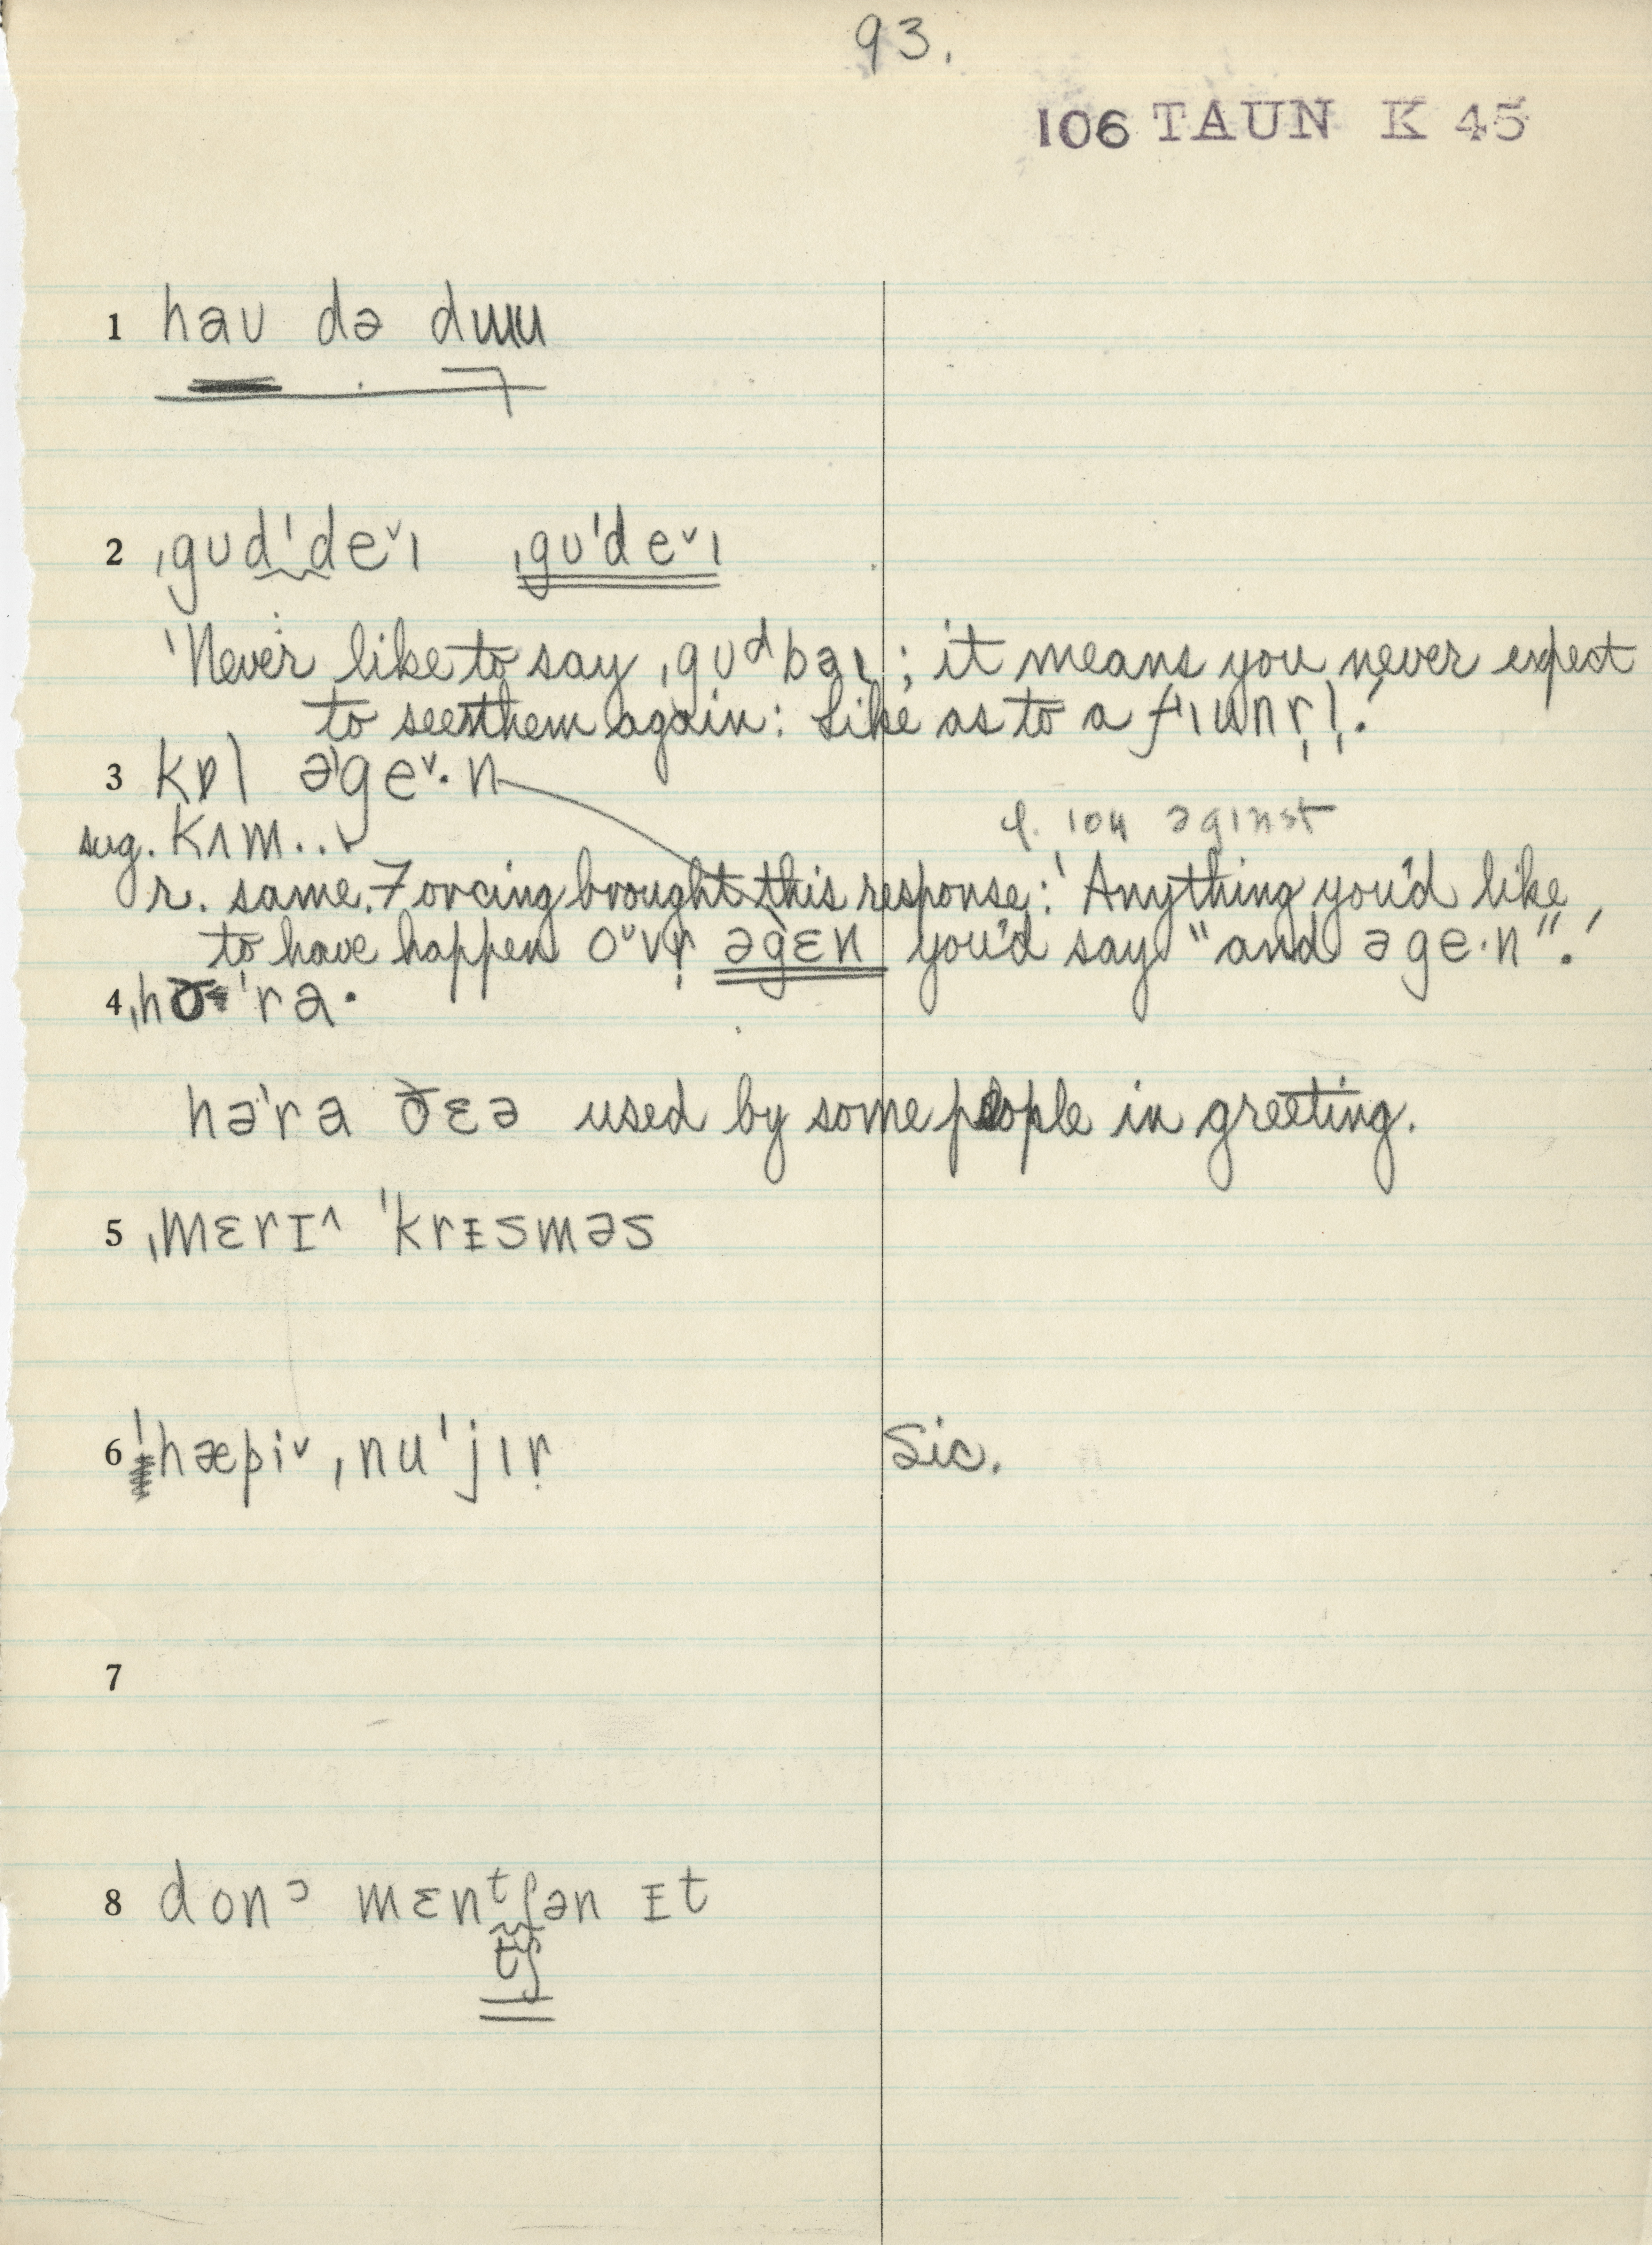 93.
106 TAUN K 45
1 haʊ də dɯu
2 ˌgʊdˈdeˇɪ ˌgʊˈdeˇɪ
'Never like to say ˌgʊᵈbaɪ; it means you never expect
to see them again: like as to a fɪunr̩l̩.'
3 kɒl əˈgeˇ·n
sug. kʌm..
p. 104 əgɪnst
r. same. Forcing brought this response: 'Anything you'd like
to have happen oˇvr̩ əgɛn you'd say "and əge·n".'
4 ˌhəˈra·
həˈra ðɛə used by some people in greeting.
5 ˌmɛrɪ^ ˈkrɪsməs
6 ˈhæpiˇ ˌnuˈjɪr̩ Sic.
7
8 don mɛnᵗʃən ɪt
tʃ